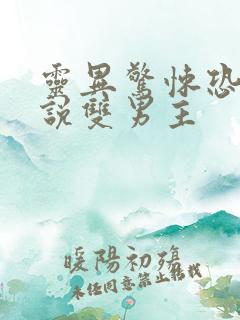 靈異驚悚恐
說雙男主
暖陽初殤
未经同意禁止转载